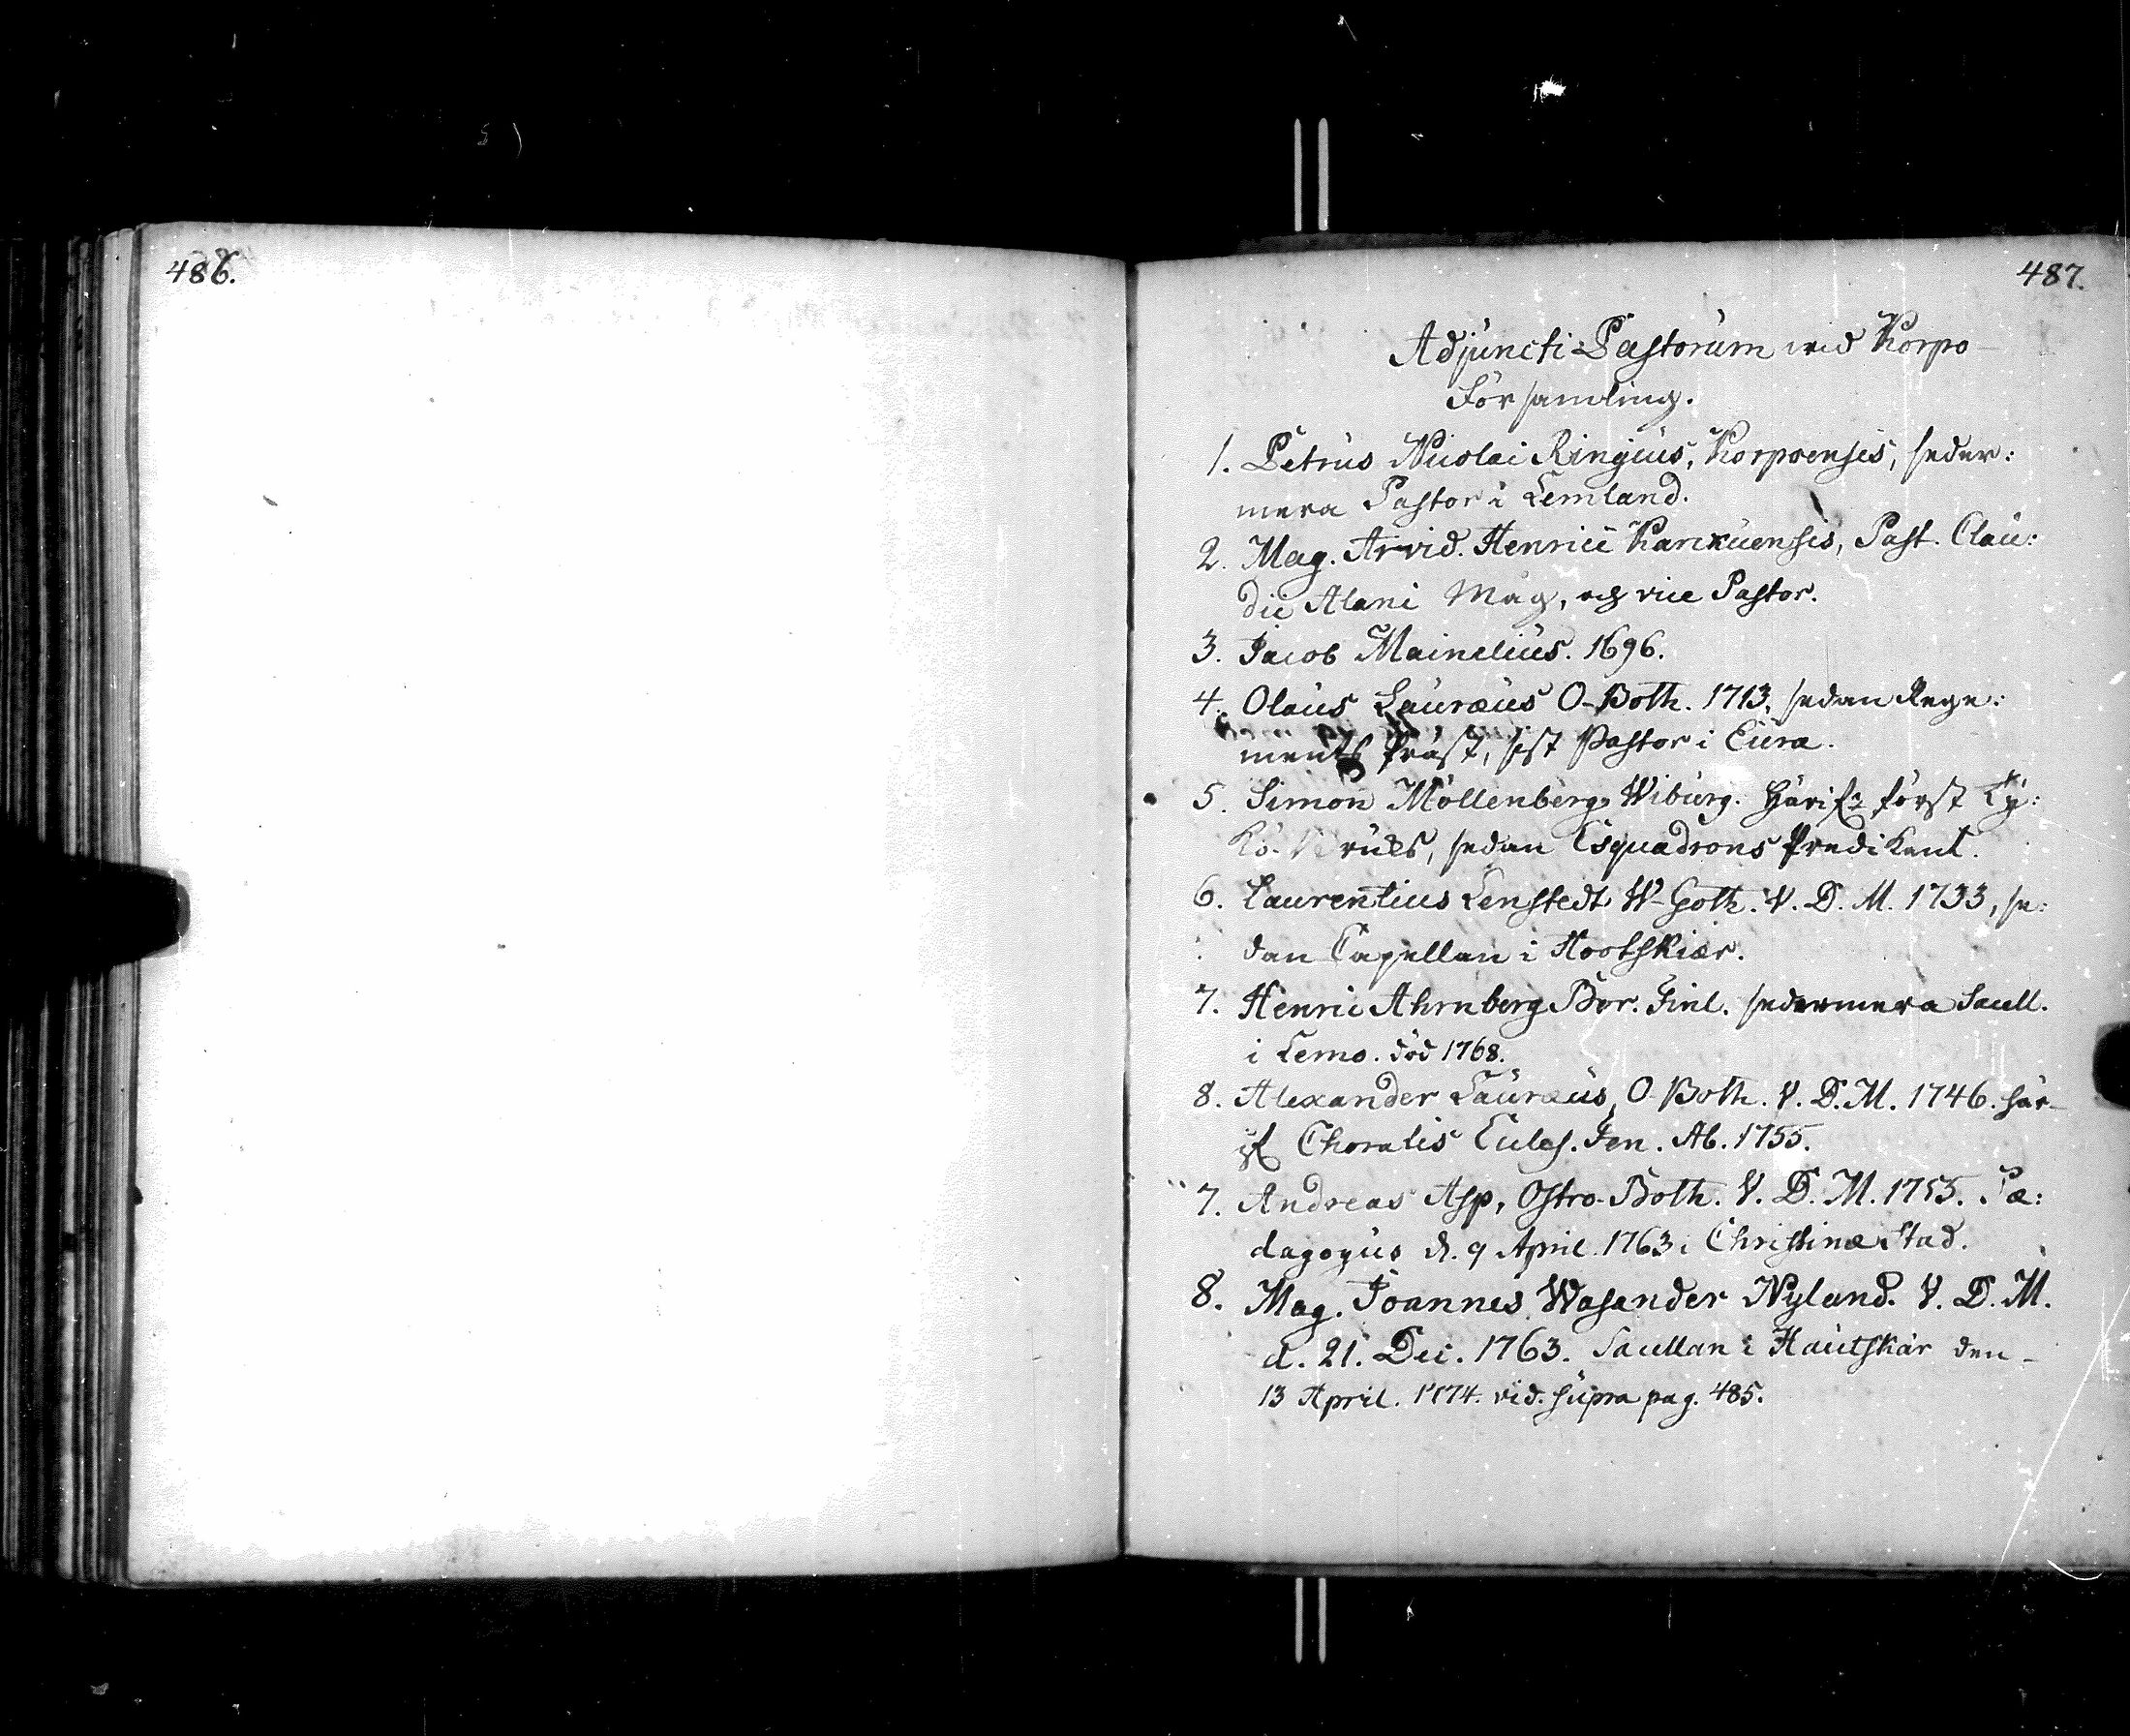 486.
487.
Adjuncti Pastorum wid Korpo
Församling.
1. Petrus Nicolai Ringius, Korpoensis, seder:
mera Pastor i Lemland.
2. Mag. Arvid. Henrici Karckuensis, Past. Clau:
dii Alani Måg, och vice Pastor.
3. Jacob Mainelius. 1696.
4. Olaus Lauræus O-Both. 1713, sedan Rege:
ments Präst, sist Pastor i Eura.
5. Simon Möllenberg Wiburg. först Ty:
kö Bruks, sedan Esquadrons Predikant.
6. Laurentius Lenstedt W-Goth. V. D. M. 1733, se:
dan Capellan i Hootskiær.
7. Henric Ahrnberg Bor. Finl. sedermera Sacell.
i Lemo. död 1768.
8. Alexander Lauræus, O-Both. V. D. M. 1746. här-
if Choralis Eccles. Fen. Ab. 1755.
7. Andreas Asp, Ostro-Both. V. D. M. 1755. Pæ:
dagogus d. 9 April 1763 i Christinæ Stad.
8. Mag. Joannes Wasander Nyland. V. D. M.
d. 21. Dec. 1763. Sacellan i Hautskär den
13 April. 1774. vid. supra pag. 485.